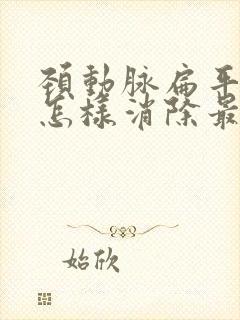 頸動脉扁平
怎樣消除最
始欣